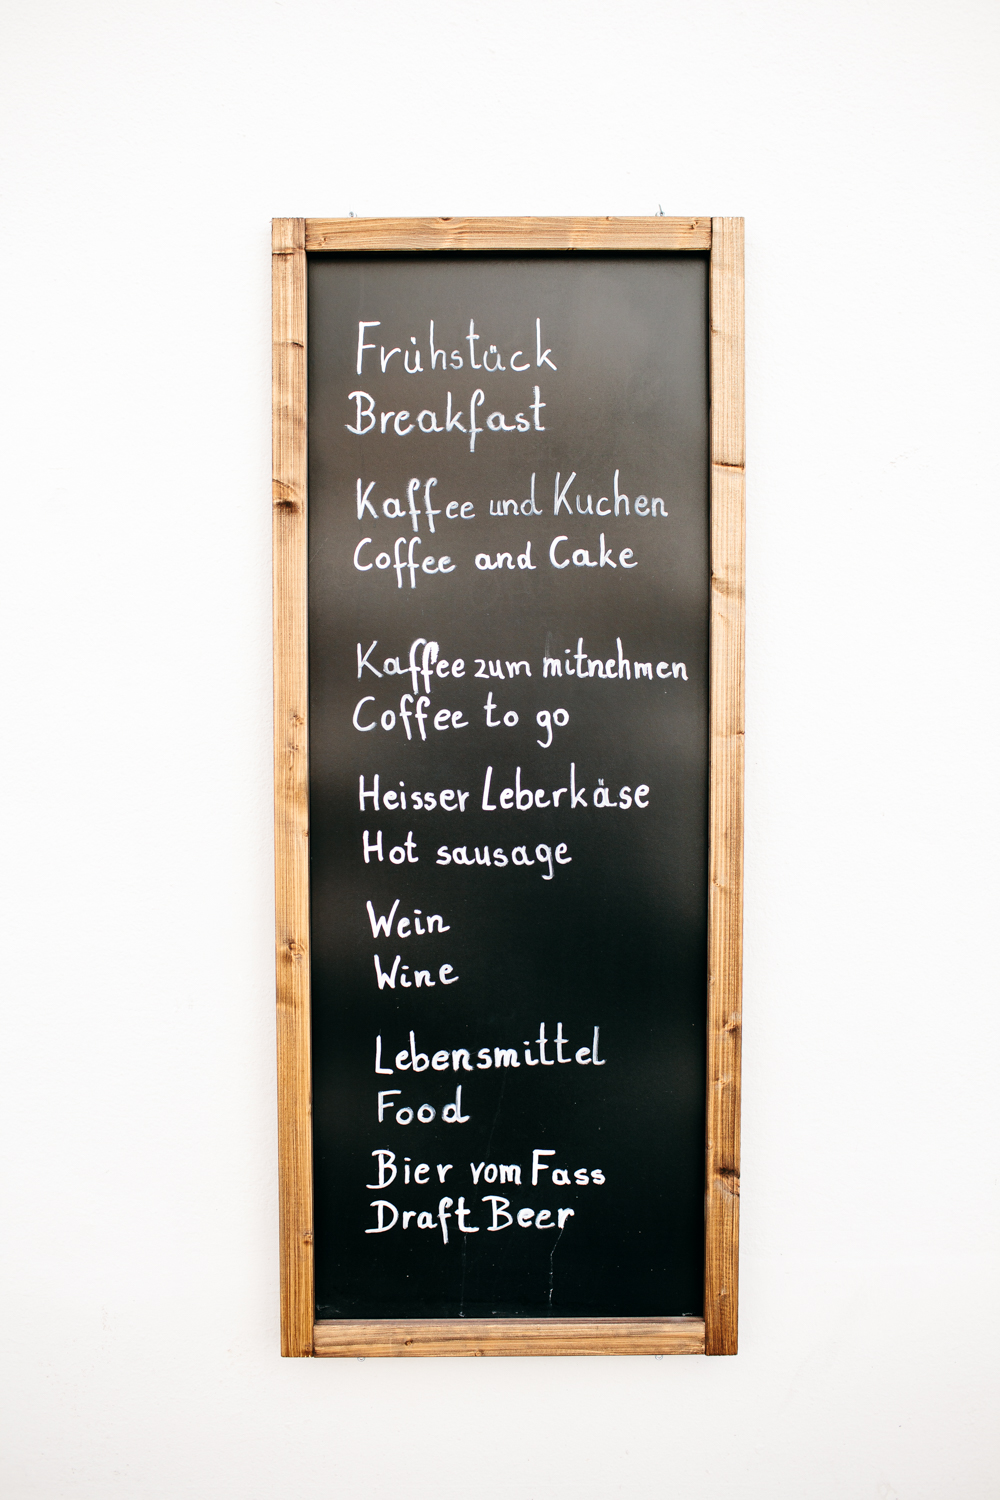 Frühstück
Breakfast
Kaffee und Kuchen
Coffee and Cake
Kaffee zum mitnehmen
Coffee to go
Heisser Leberkäse
Hot sausage
Wein
Wine
Lebensmittel
Food
Bier vom Fass
Draft Beer